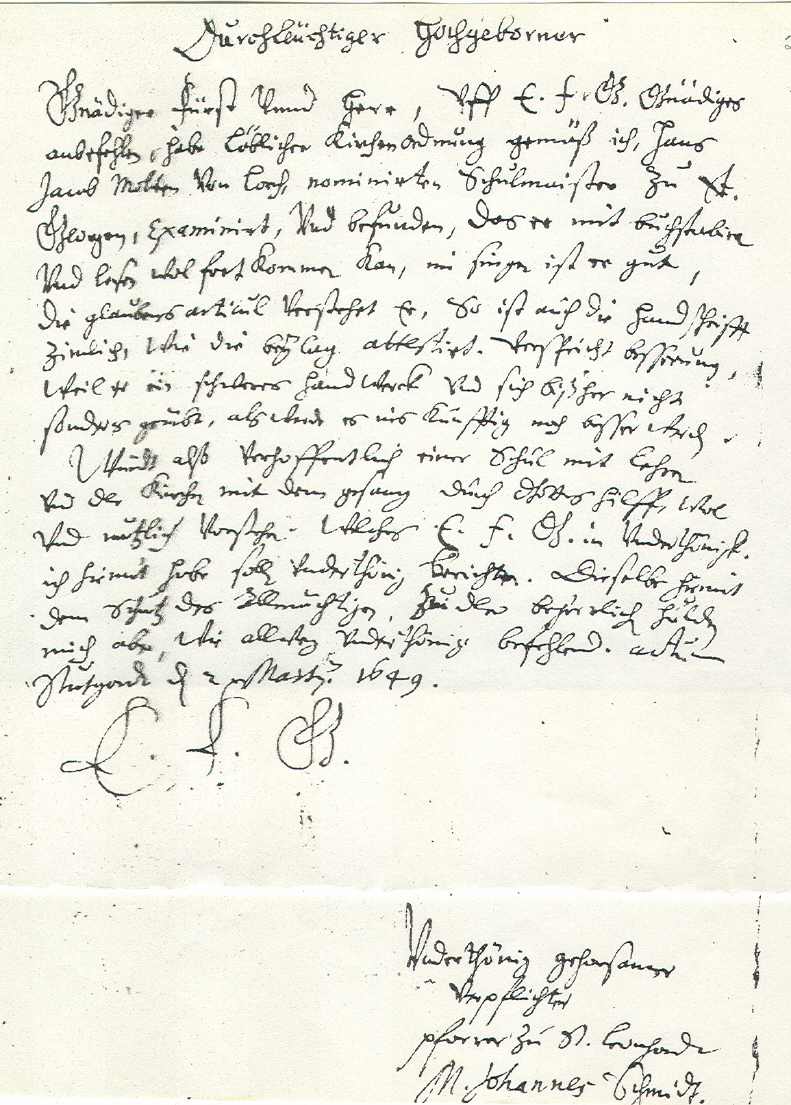 Durchleüchtiger Hochgeborner
Gnädiger Fürst Vnnd Herr, Vff E. F. G. Gnädiges
anbefehlen, habe Löblicher KirchenOrdnung gemäß ich, Hans
Jacob Molten Von Lorch, nominirten Schulmaister zu St.
Georgen, Examinirt, Vnd befunden, das er mit buchstabirn
Vnd lesen wol fort Kommen Kan, im singen ist er gut,
die glaubens articul Verstehet Er, So ist auch die Handschrifft
Zimlich, Wie die beÿlag attestirt. Verspricht besserung,
Weil er ein schweres HandWerck Vnd sich bißher nicht
sonders geübt, als werde es ins Künfftig noch besser werden.
Würdt alß Verhoffentlich einer Schul mit Lehren
Vnd der Kirchen mit dem gesang durch Gottes hilff, Wol
Vnd nutzlich Vorstehn. Welches E. F. G. in Vnderthönigk.
ich hiemit habe soll Vnderthönig berichten. Dieselbe hiemit
dem Schutz des Allmächtigen, Zu dero beharrlich hulden
mich aber, Wie allezeit Vnderthönig befehlend. actum
Stutgardt d 2 Martÿ. 1649.
E. F. G.
Vnderthönig gehorsamer
Verpflichter
pfarrer zu St. Leonhardt
M. Johannes Schmidt.